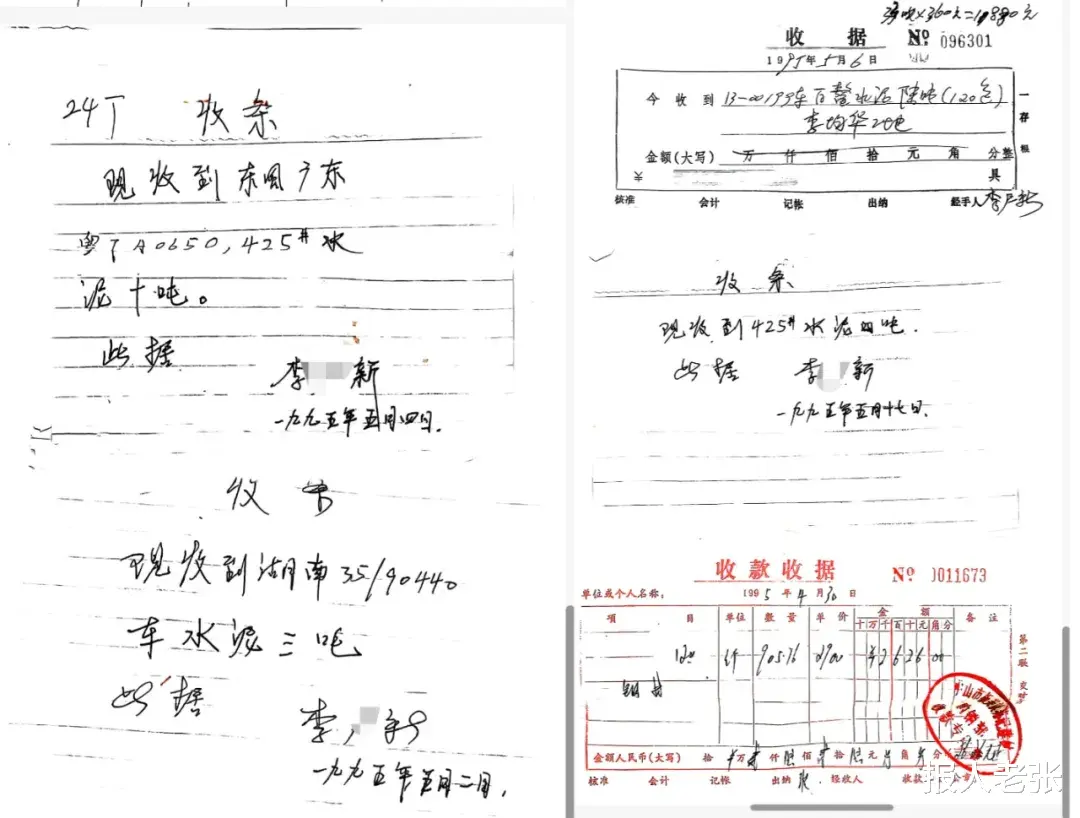 24丁 收条
现收到东风广东
粤TA0650,425#水
泥十吨。
此据
李 新
一九九五年五月四日.
收
现收到湖南35/90440
车水泥三吨
此据
李 新
一九九五年五月二日,
收 据 № 096301
1995年5月6日
今收到 13-00199车 水泥 吨(120包)
李 华
一存根
金额(大写) 万 仟 佰 拾 元 角 分整
¥ 具
核准 会计 记帐 出纳 经手人 李 新
收 条
现收到425#水泥四吨.
此据 李 新
一九九五年五月十七日.
收款收据 № 0011673
单位或个人名称: 1995年4月30日
项 目 单位 数量 单价 金 额 备注
十万千百十元角分
第二联
12 905.76 2900 ¥2626 00
钢材
金额人民币(大写) 拾 万 仟 佰 拾 元 角 分
核准 会计 记帐 出纳 经收人 收款
报人老张